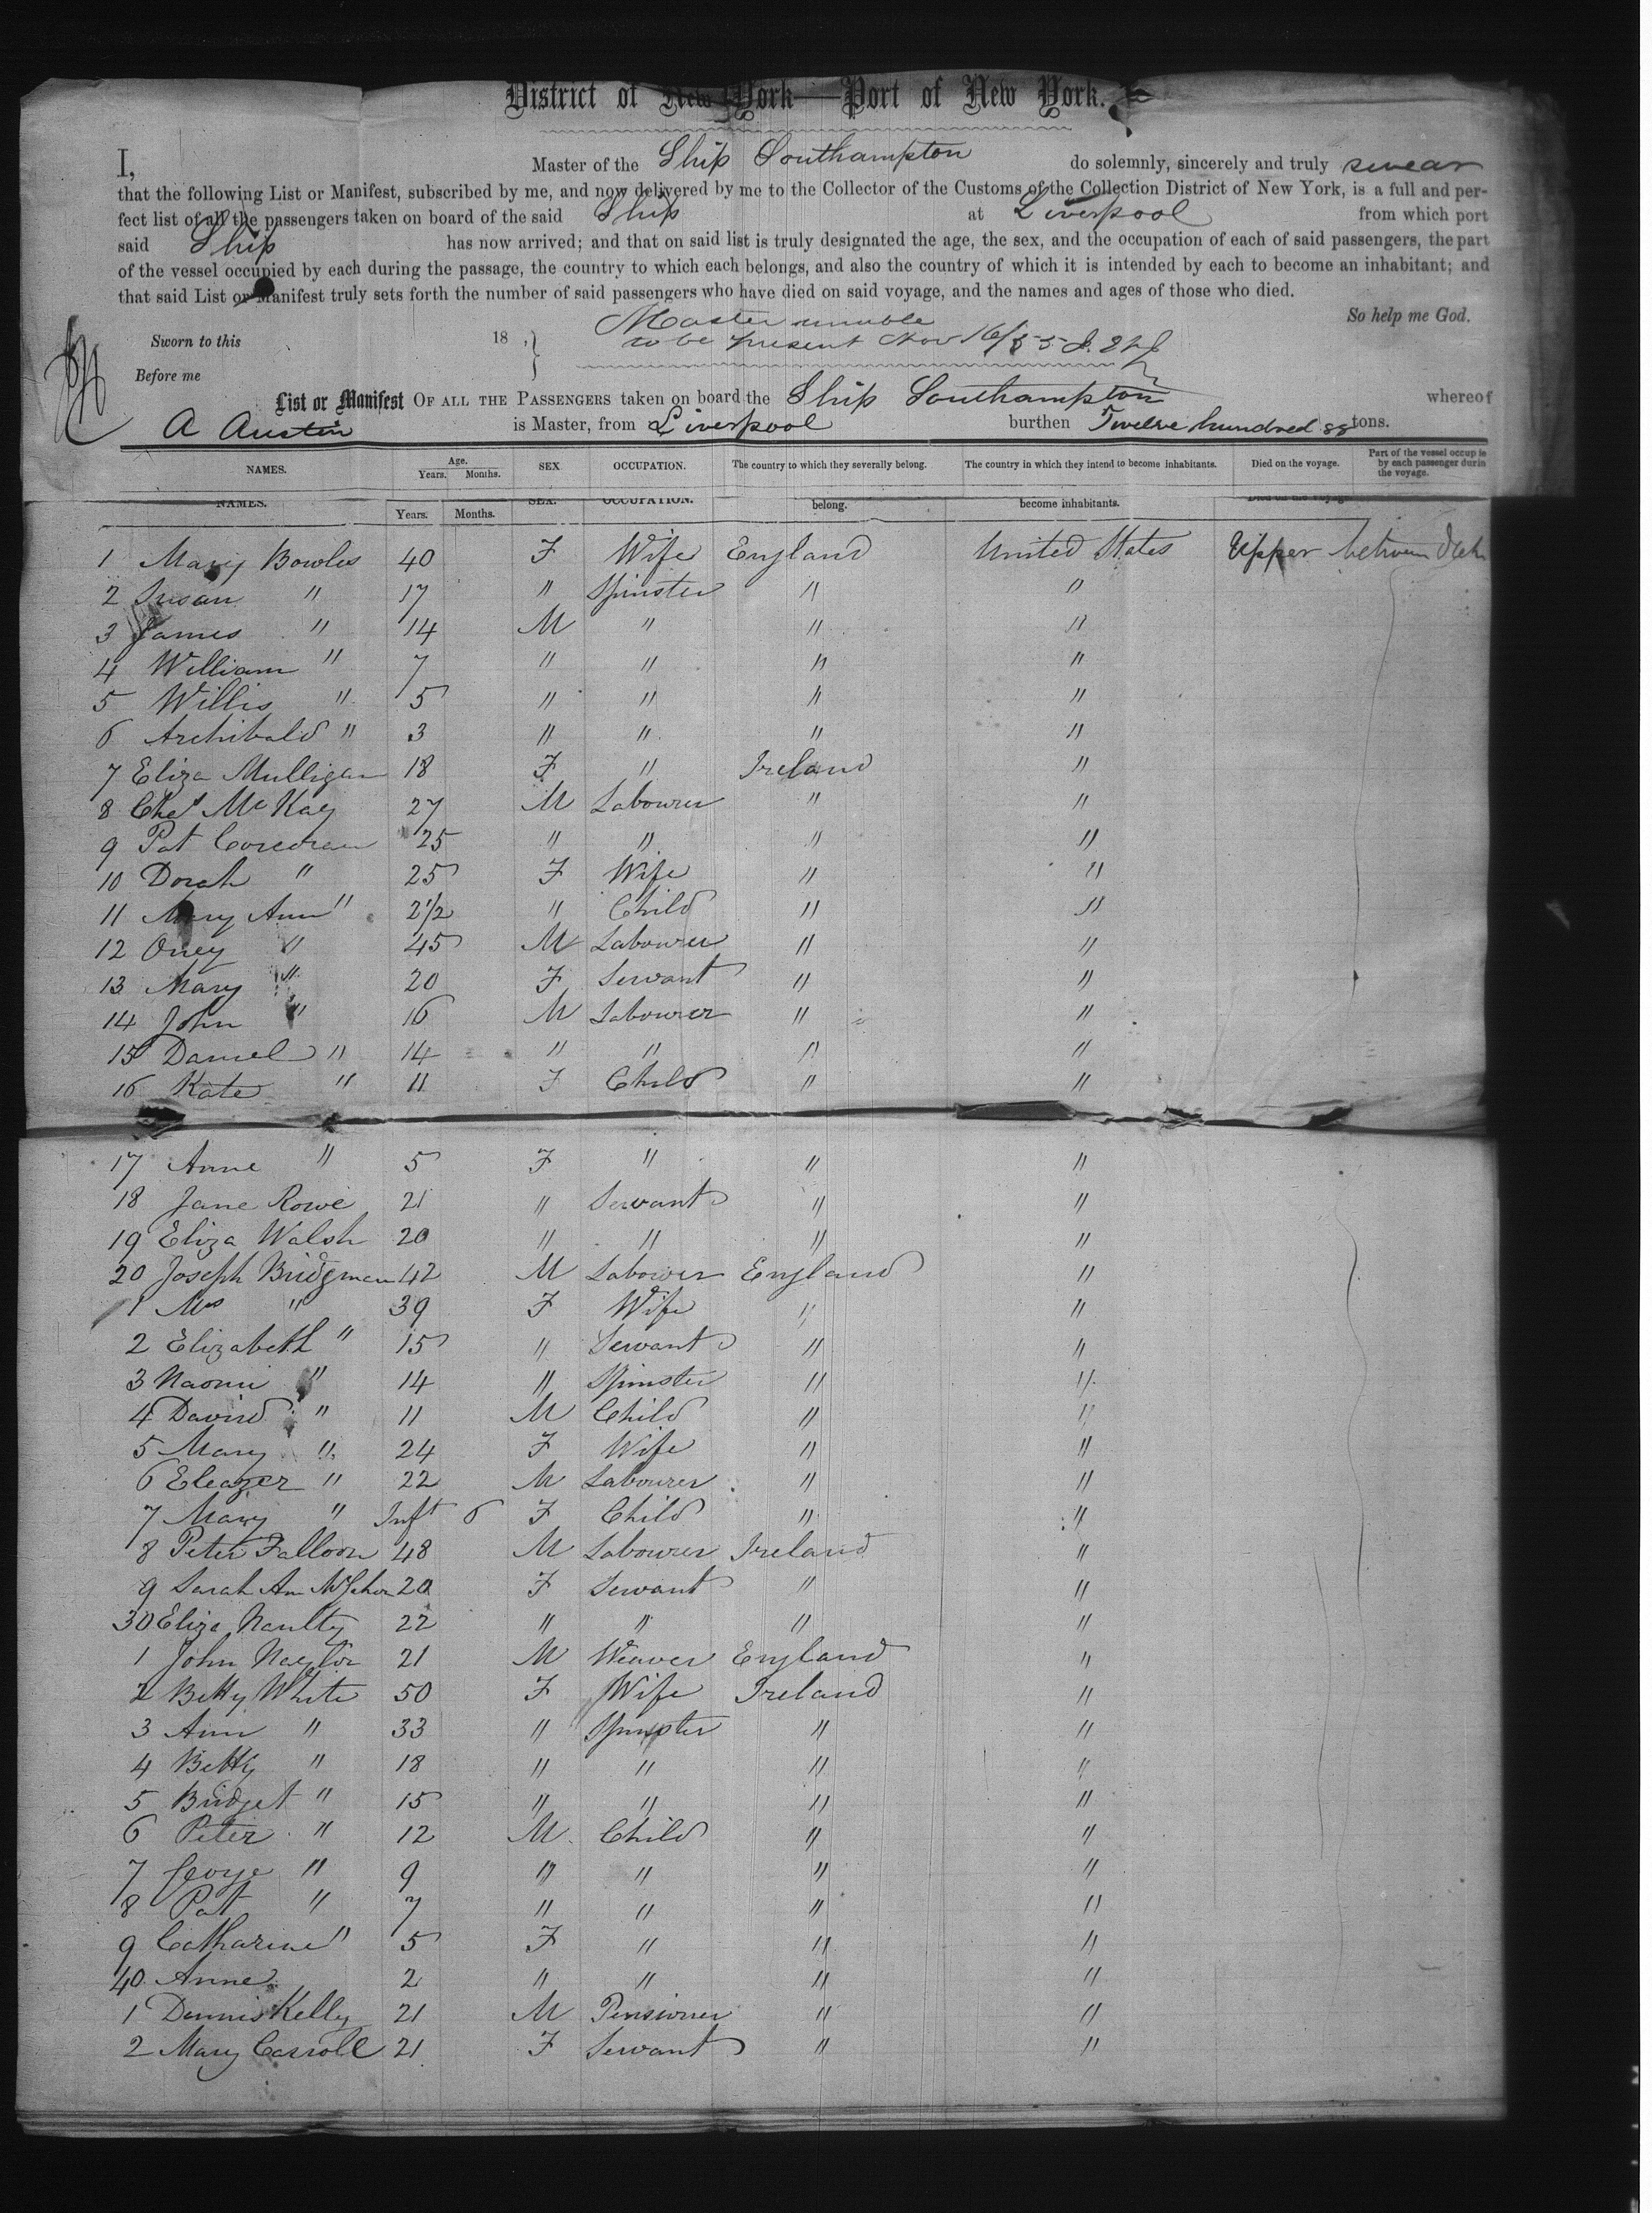 District of New York—Port of New York.
I, Master of the Ship Southampton do solemnly, sincerely and truly swear
that the following List or Manifest, subscribed by me, and now delivered by me to the Collector of the Customs of the Collection District of New York, is a full and per-
fect list of all the passengers taken on board of the said Ship at Liverpool from which port
said Ship has now arrived; and that on said list is truly designated the age, the sex, and the occupation of each of said passengers, the part
of the vessel occupied by each during the passage, the country to which each belongs, and also the country of which it is intended by each to become an inhabitant; and
that said List or Manifest truly sets forth the number of said passengers who have died on said voyage, and the names and ages of those who died.
So help me God.
Master unable
Sworn to this 18 , to be present Nov 16/55
Before me
List or Manifest OF ALL THE PASSENGERS taken on board the Ship Southampton whereof
A Austin is Master, from Liverpool burthen Twelve hundred tons.
NAMES. Age. Years. Months. SEX. OCCUPATION. The country to which they severally belong. The country in which they intend to become inhabitants. Died on the voyage. Part of the vessel occupie by each passenger durin the voyage.
NAMES. Years. Months. SEX. OCCUPATION. belong. become inhabitants. Died on the voyage
1 Mary Bowles 40 F Wife England United States Upper between deck
2 Susan " 17 " Spinster " "
3 James " 14 M " " "
4 William " 7 " " " "
5 Willis " 5 " " " "
6 Archibald " 3 " " " "
7 Eliza Mulligan 18 F " Ireland "
8 Chas McKay 27 M Labourer " "
9 Pat Corcoran 25 " " " "
10 Dorah " 25 F Wife " "
11 Mary Ann " 2 1/2 " Child " "
12 Oney " 45 M Labourer " "
13 Mary " 20 F Servant " "
14 John " 16 M Labourer " "
15 Daniel " 14 " " " "
16 Kate " 11 F Child " "
17 Anne " 5 F " " "
18 Jane Rowe 21 " Servant " "
19 Eliza Walsh 20 " " " "
20 Joseph Bridgman 42 M Labourer England "
1 Mrs " 39 F Wife " "
2 Elizabeth " 15 " Servant " "
3 Naomi " 14 " Spinster " "
4 David " 11 M Child " "
5 Mary " 24 F Wife " "
6 Eleazer " 22 M Labourer " "
7 Mary " Inft 6 F Child " "
8 Peter Falloon 48 M Labourer Ireland "
9 Sarah Ann 20 F Servant " "
30 Eliza Naulty 22 " " " "
1 John Naylor 21 M Weaver England "
2 Betty White 50 F Wife Ireland "
3 Ann " 33 " Spinster " "
4 Betty " 18 " " " "
5 Bridget " 15 " " " "
6 Peter " 12 M Child " "
7 George " 9 " " " "
8 Pat " 7 " " " "
9 Catharine " 5 F " " "
40 Anne " 2 " " " "
1 Dennis Kelly 21 M Pensioner " "
2 Mary Carroll 21 F Servant " "